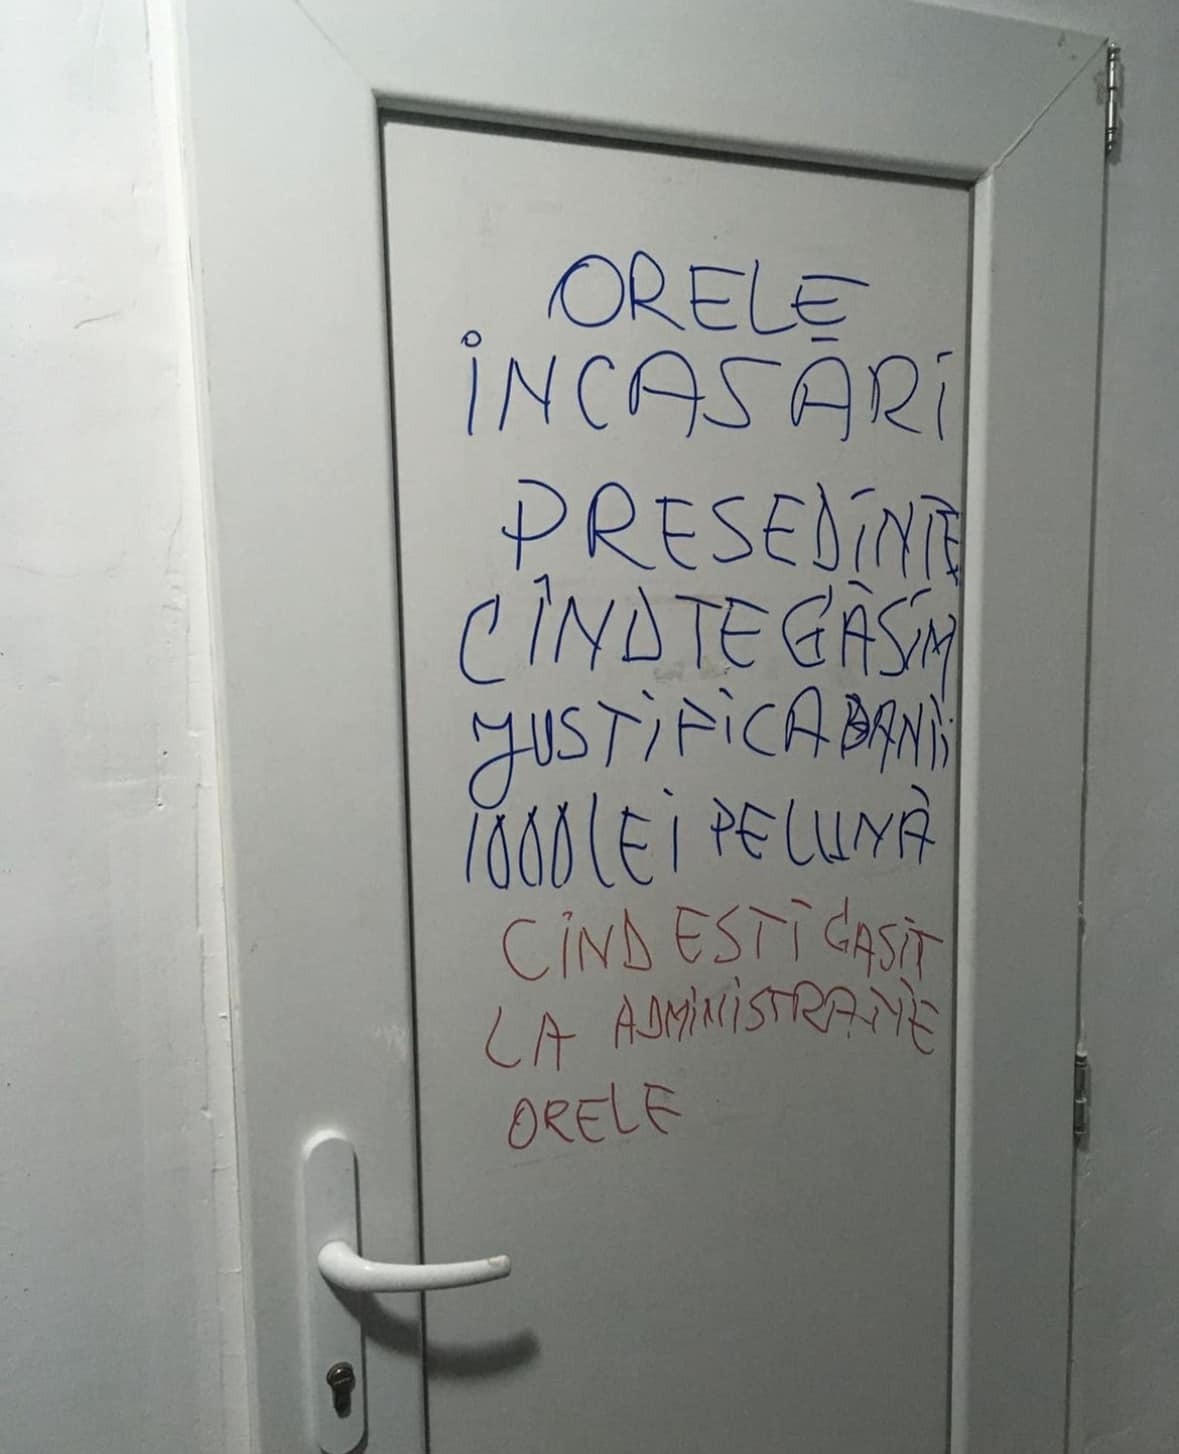 ORELE
INCASĀRI
PRESEDINTE
CÎND TE GĂSIM
JUSTIFICA BANII
1000 LEI PE LUNĂ
CIND ESTI GASIT
LA ADMINISTRAȚIE
ORELE